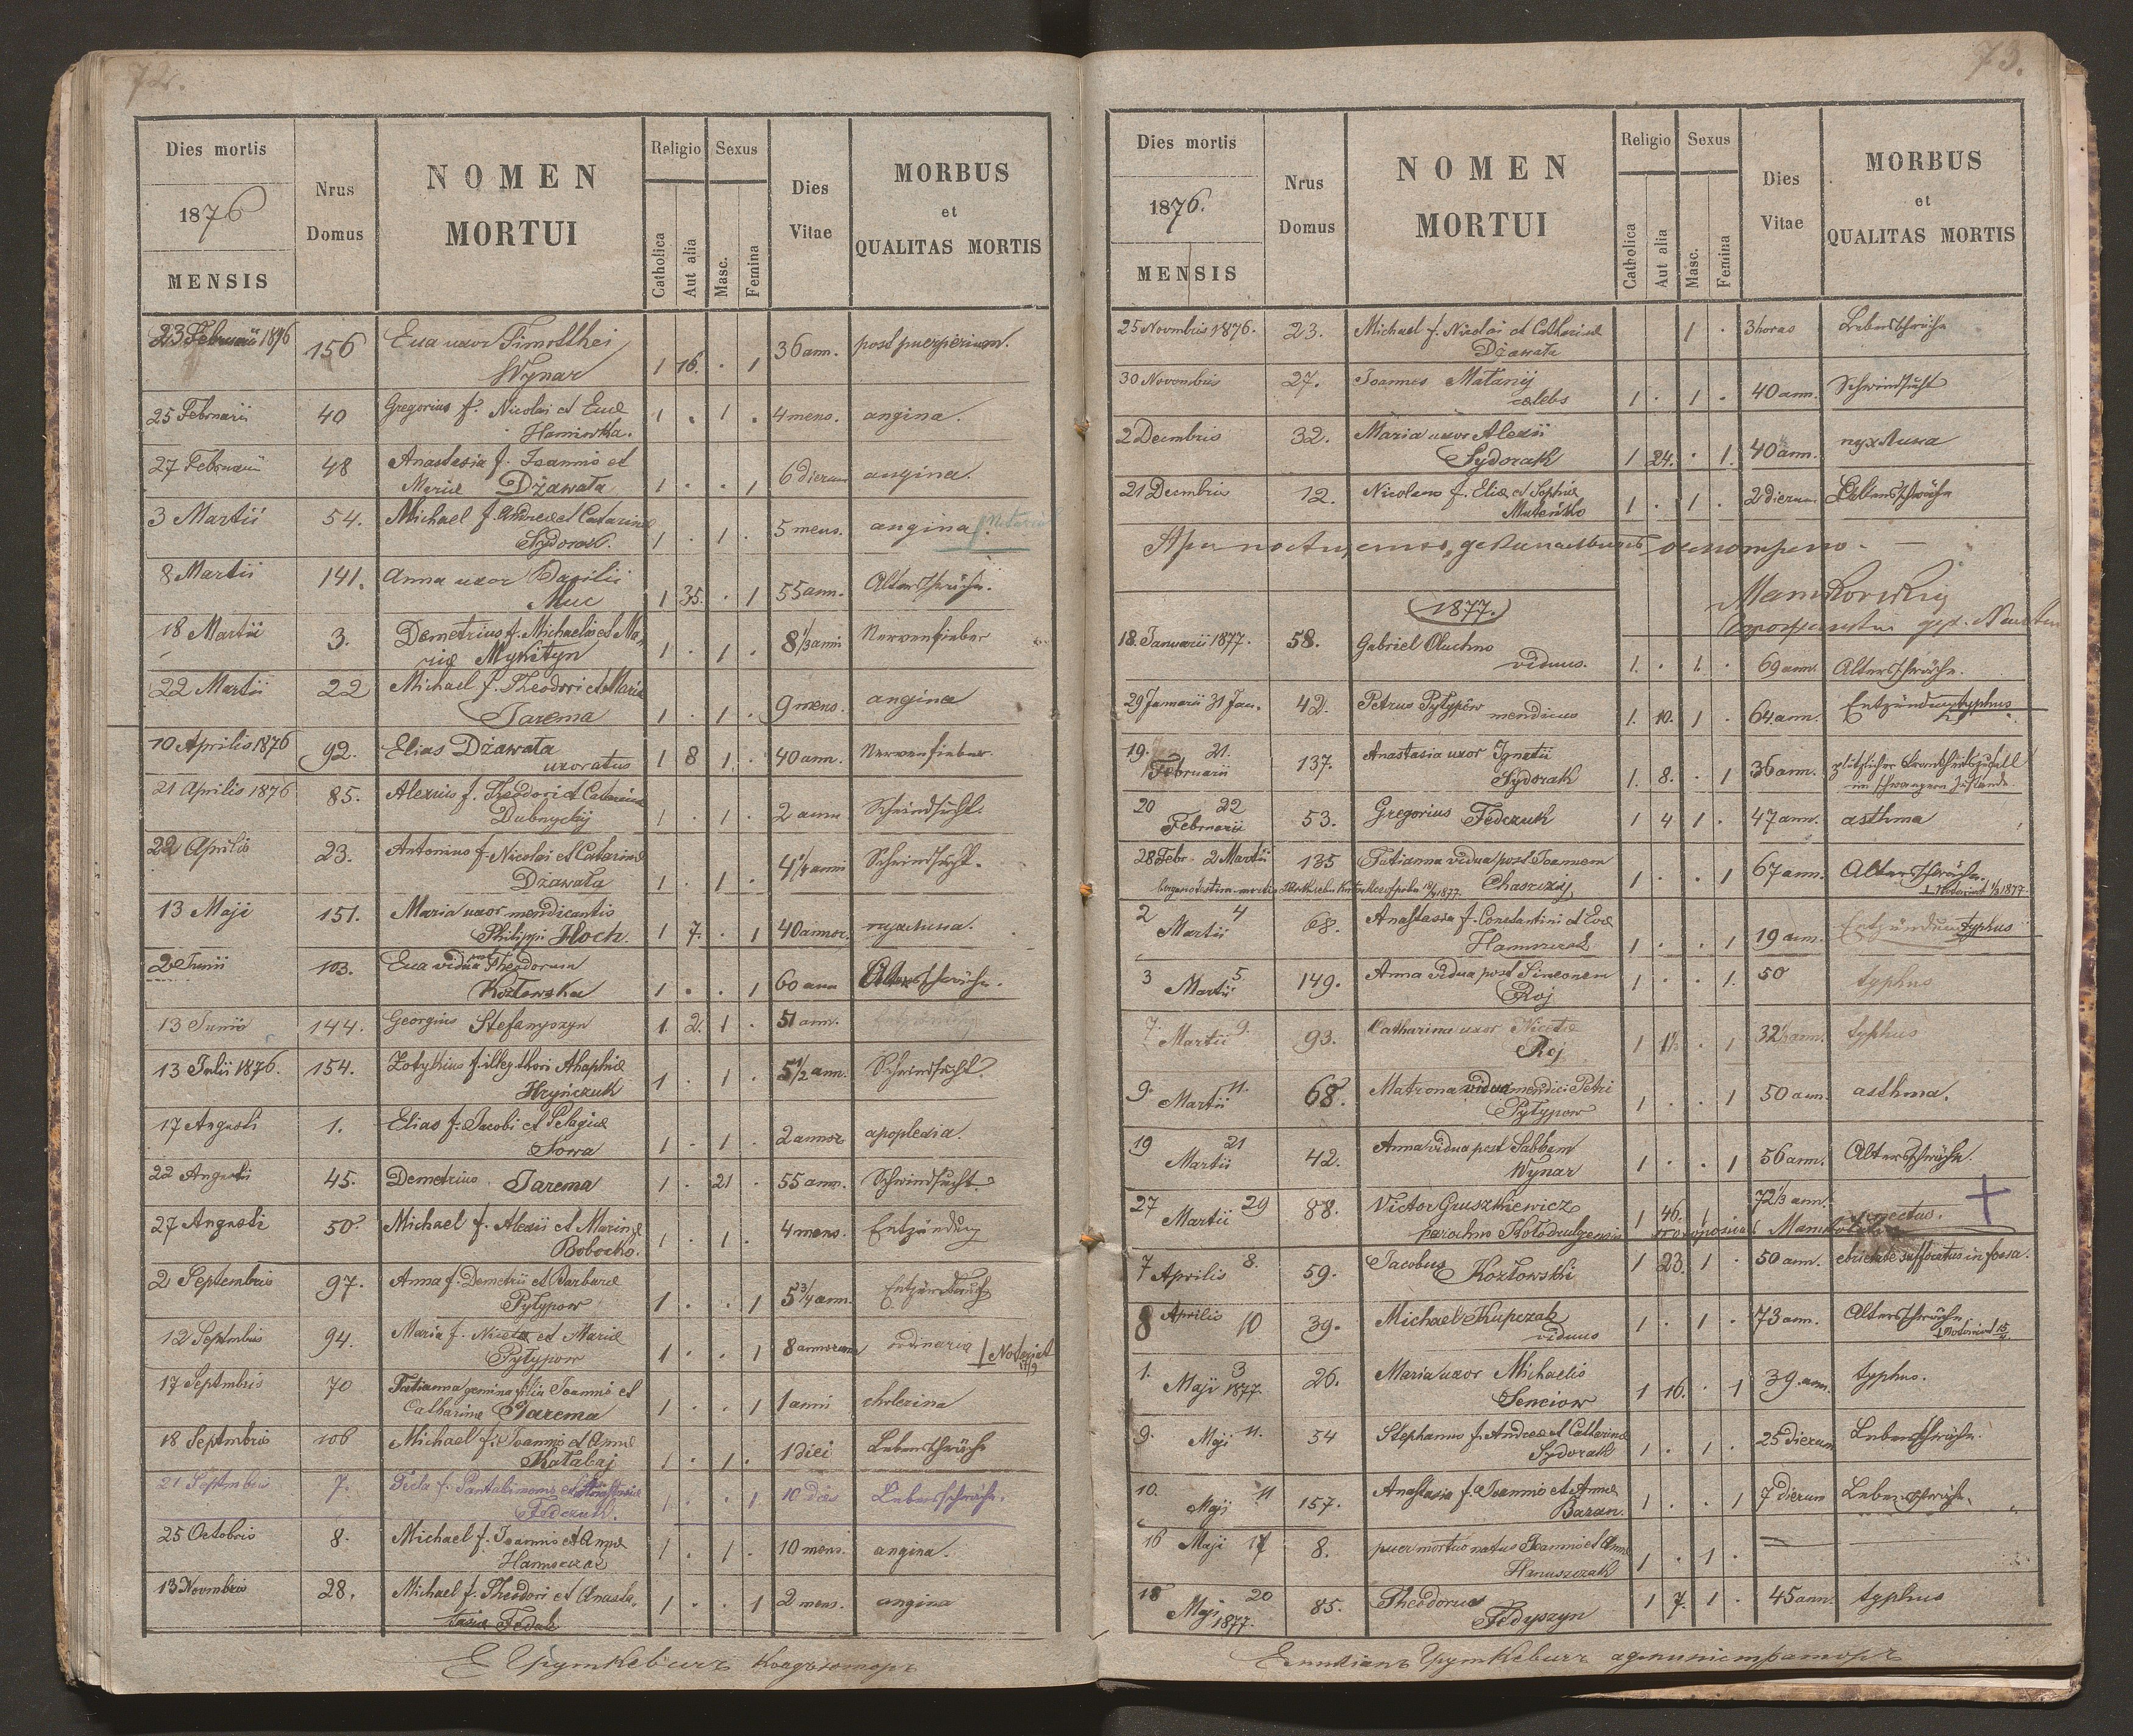 72.
Dies mortis
1876
MENSIS
Nrus
Domus
NOMEN
MORTUI
Religio
Catholica
Aut alia
Sexus
Masc.
Femina
Dies
Vitae
MORBUS
et
QUALITAS MORTIS
23 Februarii 1876 156 Eva uxor Timothei 36 ann. post puerperium.
Wynar 1 16. . 1
25 Februarii 40 Gregorius f. Nicolai et Evae 1 . 1 . 4 mens. angina.
27 Februarii 48 Anastasia f. Joannis et 6 dierum angina.
Mariae Dżawała 1 . . 1
3 Martii 54. Michael f. Andreae et Catarinae 5 mens. angina.
Sydorak. 1 . 1 .
8 Martii 141. Anna uxor Basilii 55 ann. Altersschwäche.
Muc 1 35. . 1
18 Martii 3. Demetrius f. Michaelis et Ma- 8 1/3 anni Nervenfieber
riae Mykityn 1 . 1 .
22 Martii 22 Michael f. Theodori et Mariae 9 mens. angina
Jarema 1 . 1 .
10 Aprilis 1876 92. Elias Dżawała 40 ann. Nervenfieber.
uxoratus 1 8 1 .
21 Aprilis 1876 85. Alexius f. Theodori et Catarinae 2 ann Schwindsucht.
Dubnyckij 1 . 1 .
22 Aprilis 23. Antonius f. Nicolai et Catarinae 4 1/4 anni Schwindsucht.
Dżawała 1 . 1 .
13 Maji 151. Maria uxor mendicantis
Philippi Hoch. 1 7. . 1 40 annor. пухлина.
2 Junii 103. Eva vidua post Theodorum
Kozłowska 1 . . 1 60 ann Altersschwäche.
13 Junii 144. Georgius Stefanyszyn 1. 2. 1 . 51 ann.
13 Julii 1876. 154. Zotykius f. illeg. thori Ahaphiae 5 1/2 ann. Schwindsucht.
Hryńczuk 1 . 1 .
17 Augusti 1. Elias f. Jacobi et Pelagiae 2 annor apoplexia.
Sowa 1 . 1 .
22 Augusti 45. Demetrius Jarema 1 . 21 . 55 ann. Schwindsucht.
27 Augusti 50. Michael f. Alexii et Marinae 4 mens. Entzündung
Bobocko. 1 . 1 .
2 Septembris 97. Anna f. Demetrii et Barbarae 5 3/4 ann.
Pyłypow 1 . . 1
12 Septmbris 94. Maria f. Nicetae et Mariae 8 annorum ordinaria
Pyłypow 1 . . 1 Notariat 17/9
17 Septmbris 70 Tatianna gemina filia Joannis et
Catharinae Jarema 1 . . 1 1 anni cholerina
18 Septmbris 106 Michael f. Joannis et Annae 1 diei Lebensschwäche
Katabaj 1 . 1 .
21 Septmbris 7. Tecla f. Pantalimonis et Anastasiae 10 dies Lebensschwäche.
Fedczuk. 1 . . 1
25 Octobris 8. Michael f. Joannis et Annae 10 mens. angina.
Hanuszczak 1 . 1 .
13 Novmbris 28. Michael f. Theodori et Anasta- 2 mens. angina
tasiae Fedak 1 . . 1
Е Грушкевичъ коадюторъ
73.
Dies mortis
1876.
MENSIS
Nrus
Domus
NOMEN
MORTUI
Religio
Catholica
Aut alia
Sexus
Masc.
Femina
Dies
Vitae
MORBUS
et
QUALITAS MORTIS
25 Novmbris 1876. 23. Michael f. Nicolai et Catharinae 1 . 3 horas Lebensschwäche
Dżawała
30 Novembris 27. Joannes Matanij
caelebs 1 . 1 . 40 ann. Schwindsucht
2 Decmbris 32. Maria uxor Alexii 40 ann. пухлина
Sydorak 1 24. . 1.
21 Decmbris 12. Nicolaus f. Eliae et Sophiae 2 dierum Lebensschwäche
1 . 1 .
(1877.)
18. Januarii 1877. 58. Gabriel Oluchno
viduus. 1. . 1. . 69 ann. Altersschwäche.
29 Januarii 31 Jan. 42. Petrus Pyłypów mendicus 1. 10. 1 . 64 ann. Entzündungstyphus
19. 21. Februarii 137. Anastasia uxor Ignatii 36 ann. plötzlicher Krankheitszufall
Sydorak 1. 8. . 1 im schwangern Zustande
20 22 Februarii 53. Gregorius Fedczuk 1 4 1 . 47 ann. asthma
28 Febr. 2 Martii 135 Tatianna vidua post Joannem 67 ann. Altersschwäche.
1 . . 1 Notariat 1/3 1877.
2 4 Martii 68. Anastasia f. Constantini et Evae 19 ann. Entzündungstyphus
Hanuszczak 1 . . 1
3 5 Martii 149. Anna vidua post Simeonem 1 . . 1. 50 typhus
Roj
7. 9. Martii 93. Catharina uxor Nicetae 32 1/2 ann. typhus
Roj 1 1 1/2 . 1
9. 11. Martii 68. Matrona vidua mendici Petri 50 ann. asthma.
Pyłypow 1 . . 1
19 21 Martii 42. Anna vidua post Sabbam 56 ann. Altersschwäche.
Wynar 1 . . 1
27 29 Martii 88. Victor Gruszkiewicz 1 46. 1 72 1/3 ann. senectus.
parochus
7 8. Aprilis 59. Jacobus Kozłowski 1 23. 1 . 50 ann. ebrietate suffocatus in fossa.
8 Aprilis 10 39. Michael Kupczak
viduus 1 . 1 . 73 ann. Altersschwäche
Notariat 15/4
1. 3 Maji 1877. 26. Maria uxor Michaelis 39. ann. typhus.
Senciow 1 16. . 1
9. 11. Maji 54 Stephanus f. Andreae et Catharinae 25 dierum Lebensschwäche.
Sydorak 1 . 1 .
10. 11 Maji 157. Anastasia f. Joannis et Annae 7 dierum Lebensschwäche.
Baran. 1 . . 1
16 Maji 17 8. puer mortuo natus Joannis et Annae
Hanuszczak 1 . 1 .
18 20 Maji 1877. 85. Theodorus 1 7. 1 . 45 ann. typhus
Fedyszyn
Емилианъ Грушкевичъ администраторъ